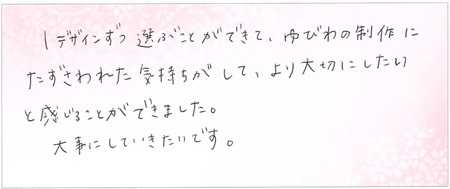 1デザインずつ選ぶことができて、ゆびわの制作に
たずさわれた気持ちがして、より大切にしたい
と感じることができました。
大事にしていきたいです。